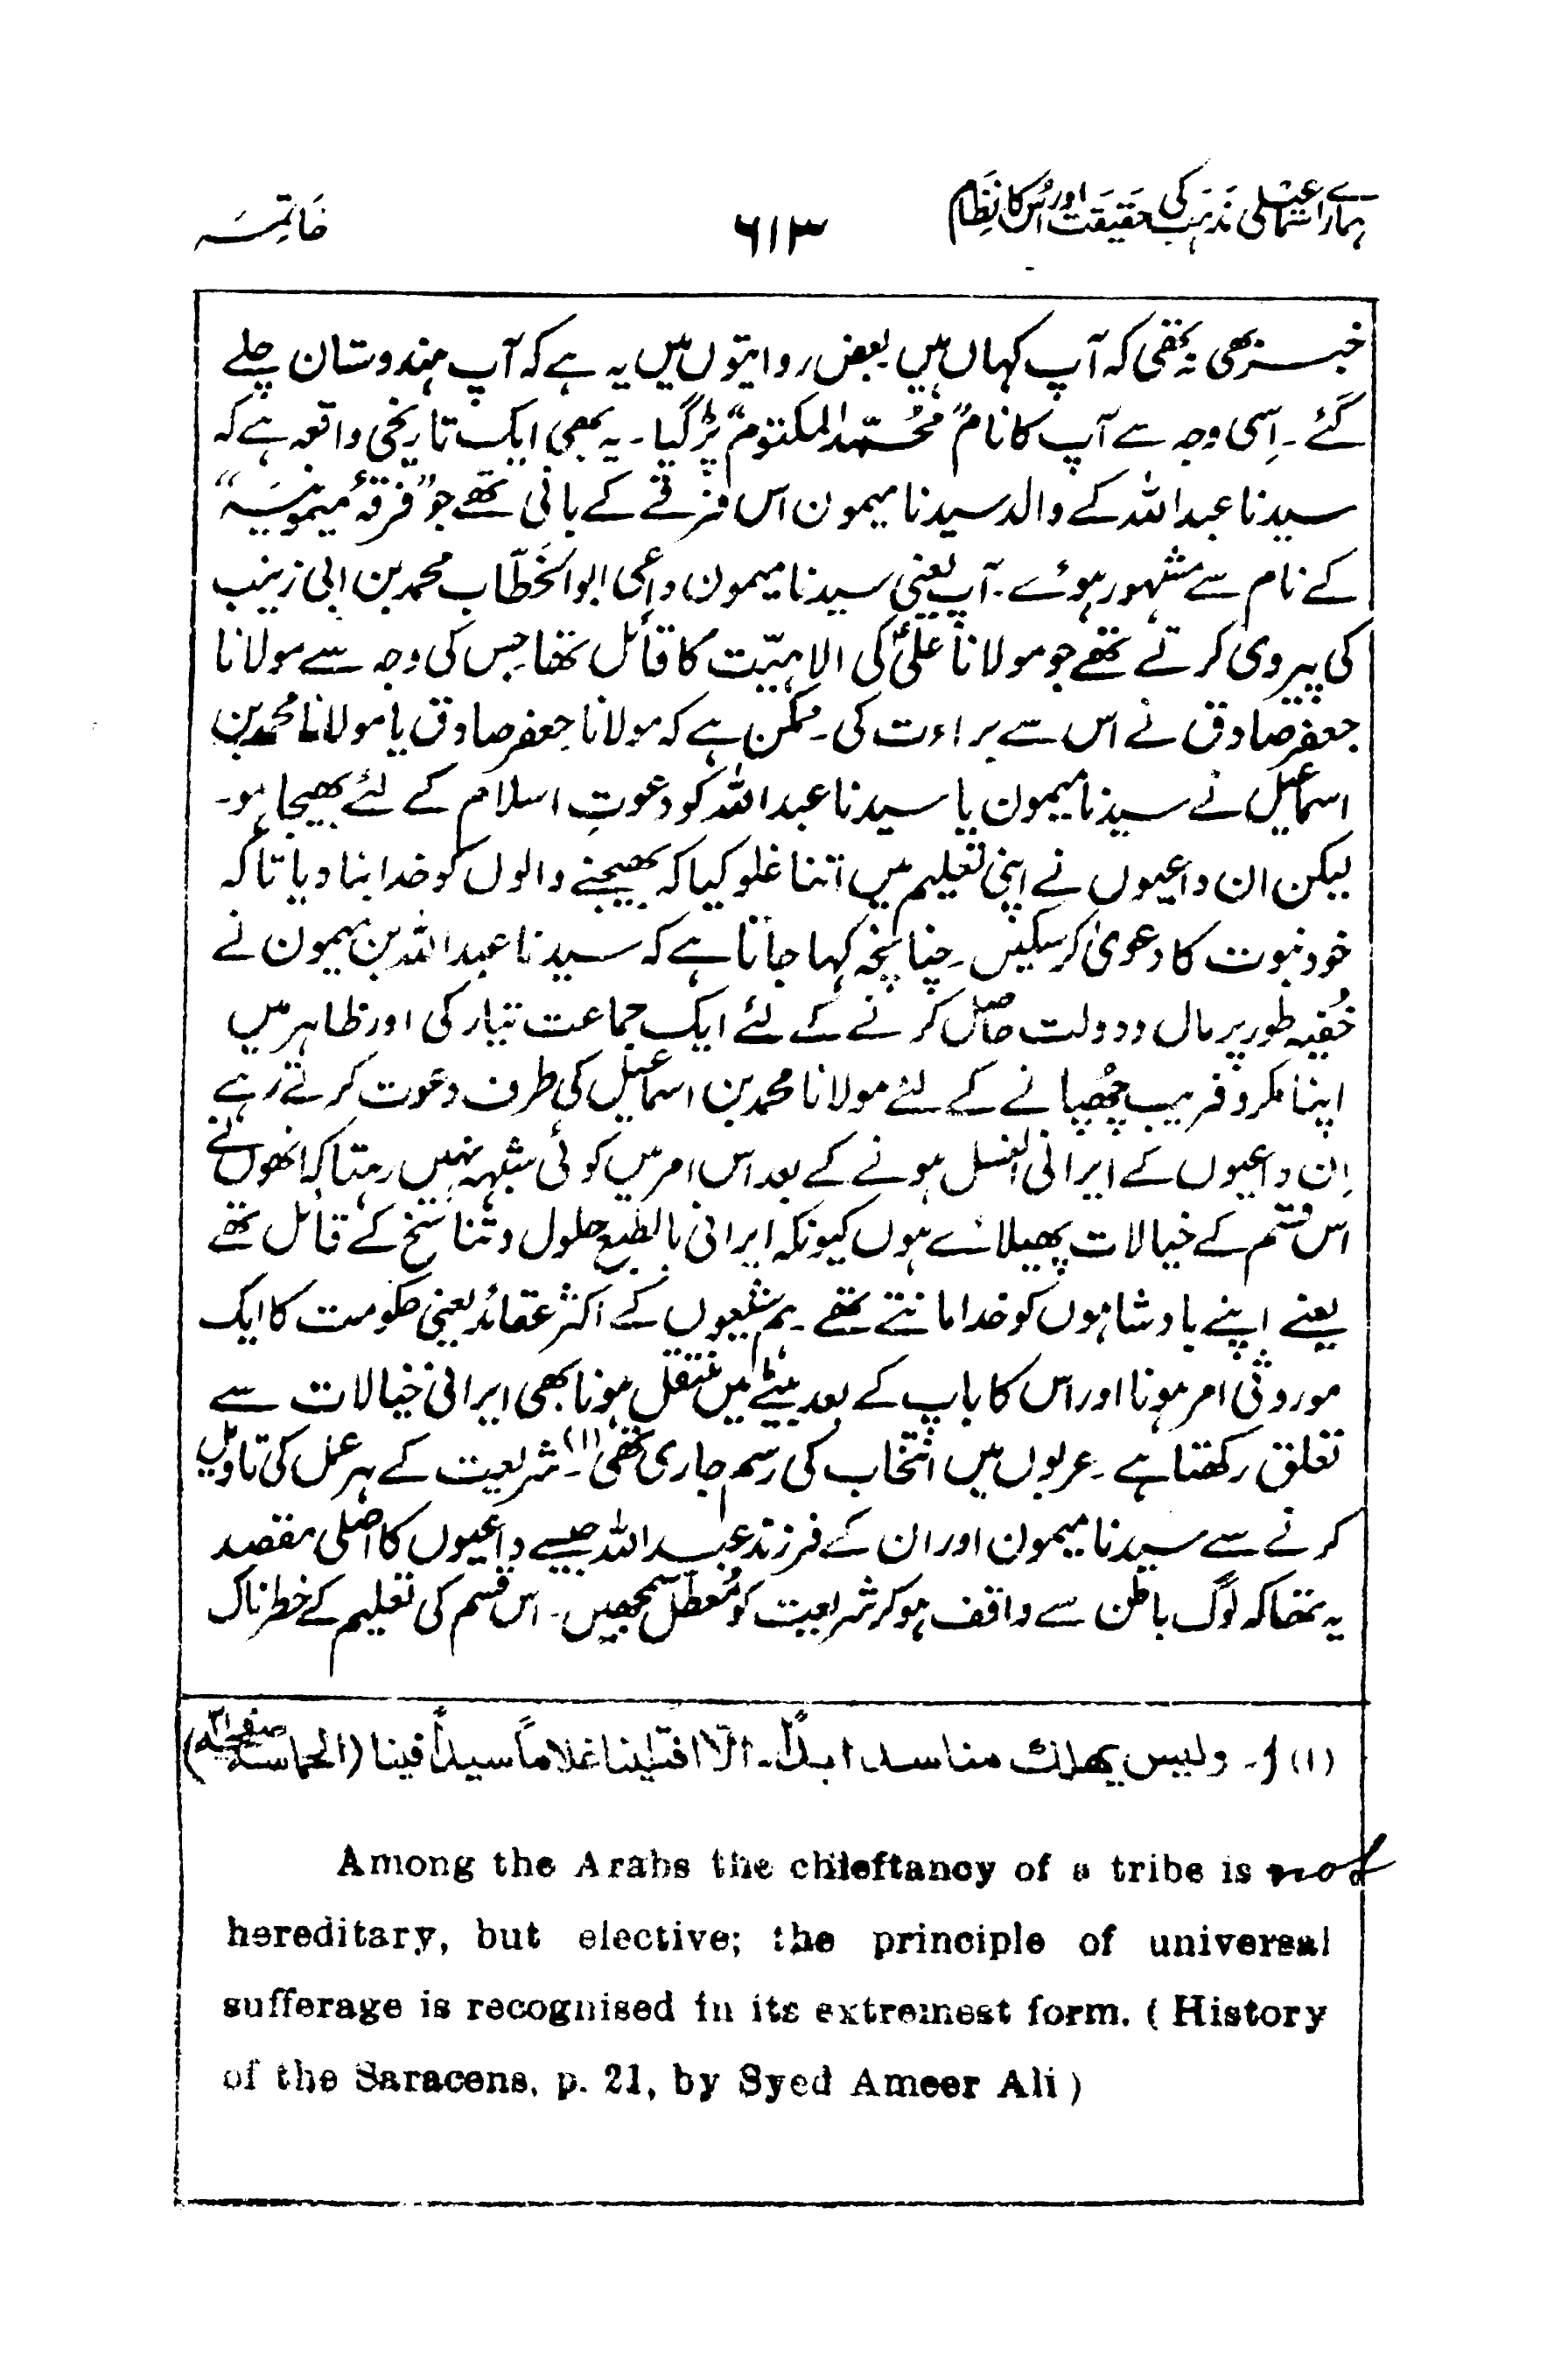 ہمارے اسماعیلی مذہب کی حقیقت اور اُس کا نظام
۶۱۳
خاتمہ
خبر بھی نہ تھی کہ آپ کہاں ہیں بعض روایتوں میں یہ ہے کہ آپ ہندوستان چلے
گئے۔ اِسی وجہ سے آپ کا نام "محمّد المکتوم" پڑ گیا۔ یہ بھی ایک تاریخی واقعہ ہے کہ
سیدنا عبد اللہ کے والد سیدنا میمون اس فرقے کے بانی تھے جو "فرقۂ میمونیہ"
کے نام سے مشہور ہوئے۔ آپ یعنی سیدنا میمون داعی ابو الخَطّاب محمد بن ابی زینب
کی پیروی کرتے تھے جو مولانا علیؑ کی الاہیّت کا قائل تھا جس کی وجہ سے مولانا
جعفر صادق نے اس سے براءت کی۔ ممکن ہے کہ مولانا جعفر صادق یا مولانا محمد بن
اسماعیل نے سیدنا میمون یا سیدنا عبد اللہ کو دعوتِ اسلام کے لئے بھیجا ہو۔
لیکن ان داعیوں نے اپنی تعلیم میں اتنا غلو کیا کہ بھیجنے والوں کو خدا بنا دیا تاکہ
خود نبوت کا دعویٰ کر سکیں۔ چنانچہ کہا جاتا ہے کہ سیدنا عبد اللہ بن میمون نے
خُفیہ طور پر مال و دولت حاصل کرنے کے لئے ایک جماعت تیار کی اور ظاہر میں
اپنا مکر و فریب چُھپانے کے لئے مولانا محمد بن اسماعیل کی طرف دعوت کرتے رہے
اِن داعیوں کے ایرانی النسل ہونے کے بعد اس امر میں کوئی شبہہ نہیں رہتا کہ انھوں نے
اس قسم کے خیالات پھیلائے ہوں کیونکہ ایرانی بالطبع حلول و تناسخ کے قائل تھے
یعنے اپنے بادشاہوں کو خدا مانتے تھے۔ ہم شیعیوں کے اکثر عقائد یعنی حکومت کا ایک
موروثی امر ہونا اور اس کا باپ کے بعد بیٹے میں منتقل ہونا بھی ایرانی خیالات سے
تعلق رکھتا ہے۔ عربوں میں انتخاب کی رسم جاری تھی (۱)۔ شریعت کے ہر عمل کی تاویل
کرنے سے سیدنا میمون اور ان کے فرزند عبد اللہ جیسے داعیوں کا اصلی مقصد
یہ تھا کہ لوگ باطن سے واقف ہو کر شریعت کو مُعطّل سمجھیں۔ اس قسم کی تعلیم کے خطرناک
(۱) ا۔ ولیس یھلك منا سید ابداً۔ الّا افتلینا غلاماً سیداً فینا (الحماسہ صفحہ ۳۱)
Among the Arabs the chieftancy of a tribe is not
hereditary, but elective; the principle of universal
sufferage is recognised in its extremest form. ( History
of the Saracens, p. 21, by Syed Ameer Ali )